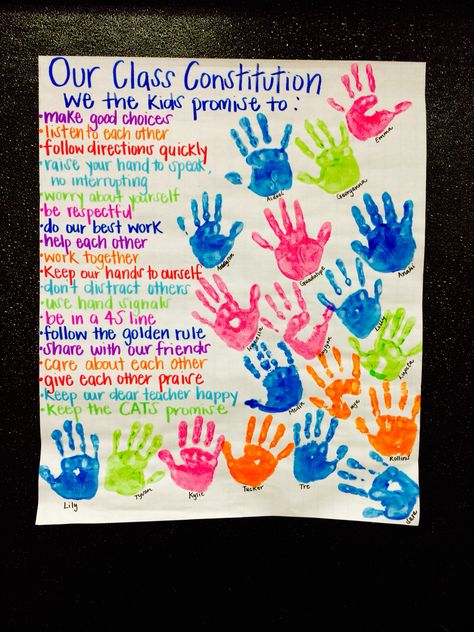 Our Class Constitution
We the Kids promise to:
•make good choices
•listen to each other
•follow directions quickly
•raise your hand to speak,
no interrupting
•worry about yourself
•be respectful
•do our best work
•help each other
•work together
•Keep our hands to ourself
•don't distract others
•use hand signals
•be in a 4S line
•follow the golden rule
•share with our friends
•care about each other
•give each other praise
•Keep our dear teacher happy
•Keep the CATS promise
Emma
Georgianna
Addyson
Guadalupe
Anahi
Lily
Kylie
Tucker
Tre
Rollin